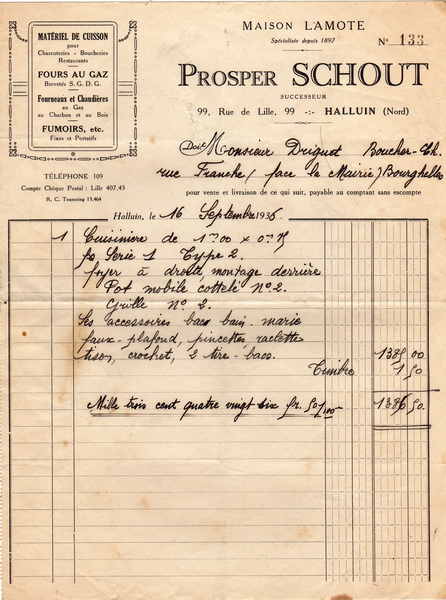 MATÉRIEL DE CUISSON
pour
Charcuteries - Boucheries
Restaurants
FOURS AU GAZ
Brevetés S. G. D. G.
Fourneaux et Chaudières
au Gaz
au Charbon et au Bois
FUMOIRS, etc.
Fixes et Portatifs
TÉLÉPHONE 109
Compte Chèque Postal : Lille 407.43
R. C. Tourcoing 13.464
MAISON LAMOTE
Spécialisée depuis 1897
N° 133
PROSPER SCHOUT
SUCCESSEUR
99, Rue de Lille, 99 -:- HALLUIN (Nord)
Doit Monsieur Driguet Boucher-Ch.
rue Franche (face la Mairie) Bourghelles
pour vente et livraison de ce qui suit, payable au comptant sans escompte
Halluin, le 16 Septembre 1936
1 Cuisinière de 1m00 x 0m75
Série 1 Type 2.
foyer à droite, montage derrière
Pot mobile cottelé N° 2.
Grille N° 2.
Ses accessoires bacs bain-marie
faux-plafond, pincettes, raclette
tison, crochet, 2 tire-bacs. 1385 00
Timbre 1 50
Mille trois cent quatre vingt six fr. 50/100 1386 50.